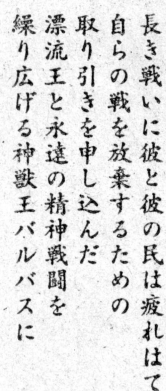 長き戦いに彼と彼の民は疲れはて
自らの戦を放棄するための
取り引きを申し込んだ
漂流王と永遠の精神戦闘を
繰り広げる神獣王バルバスに